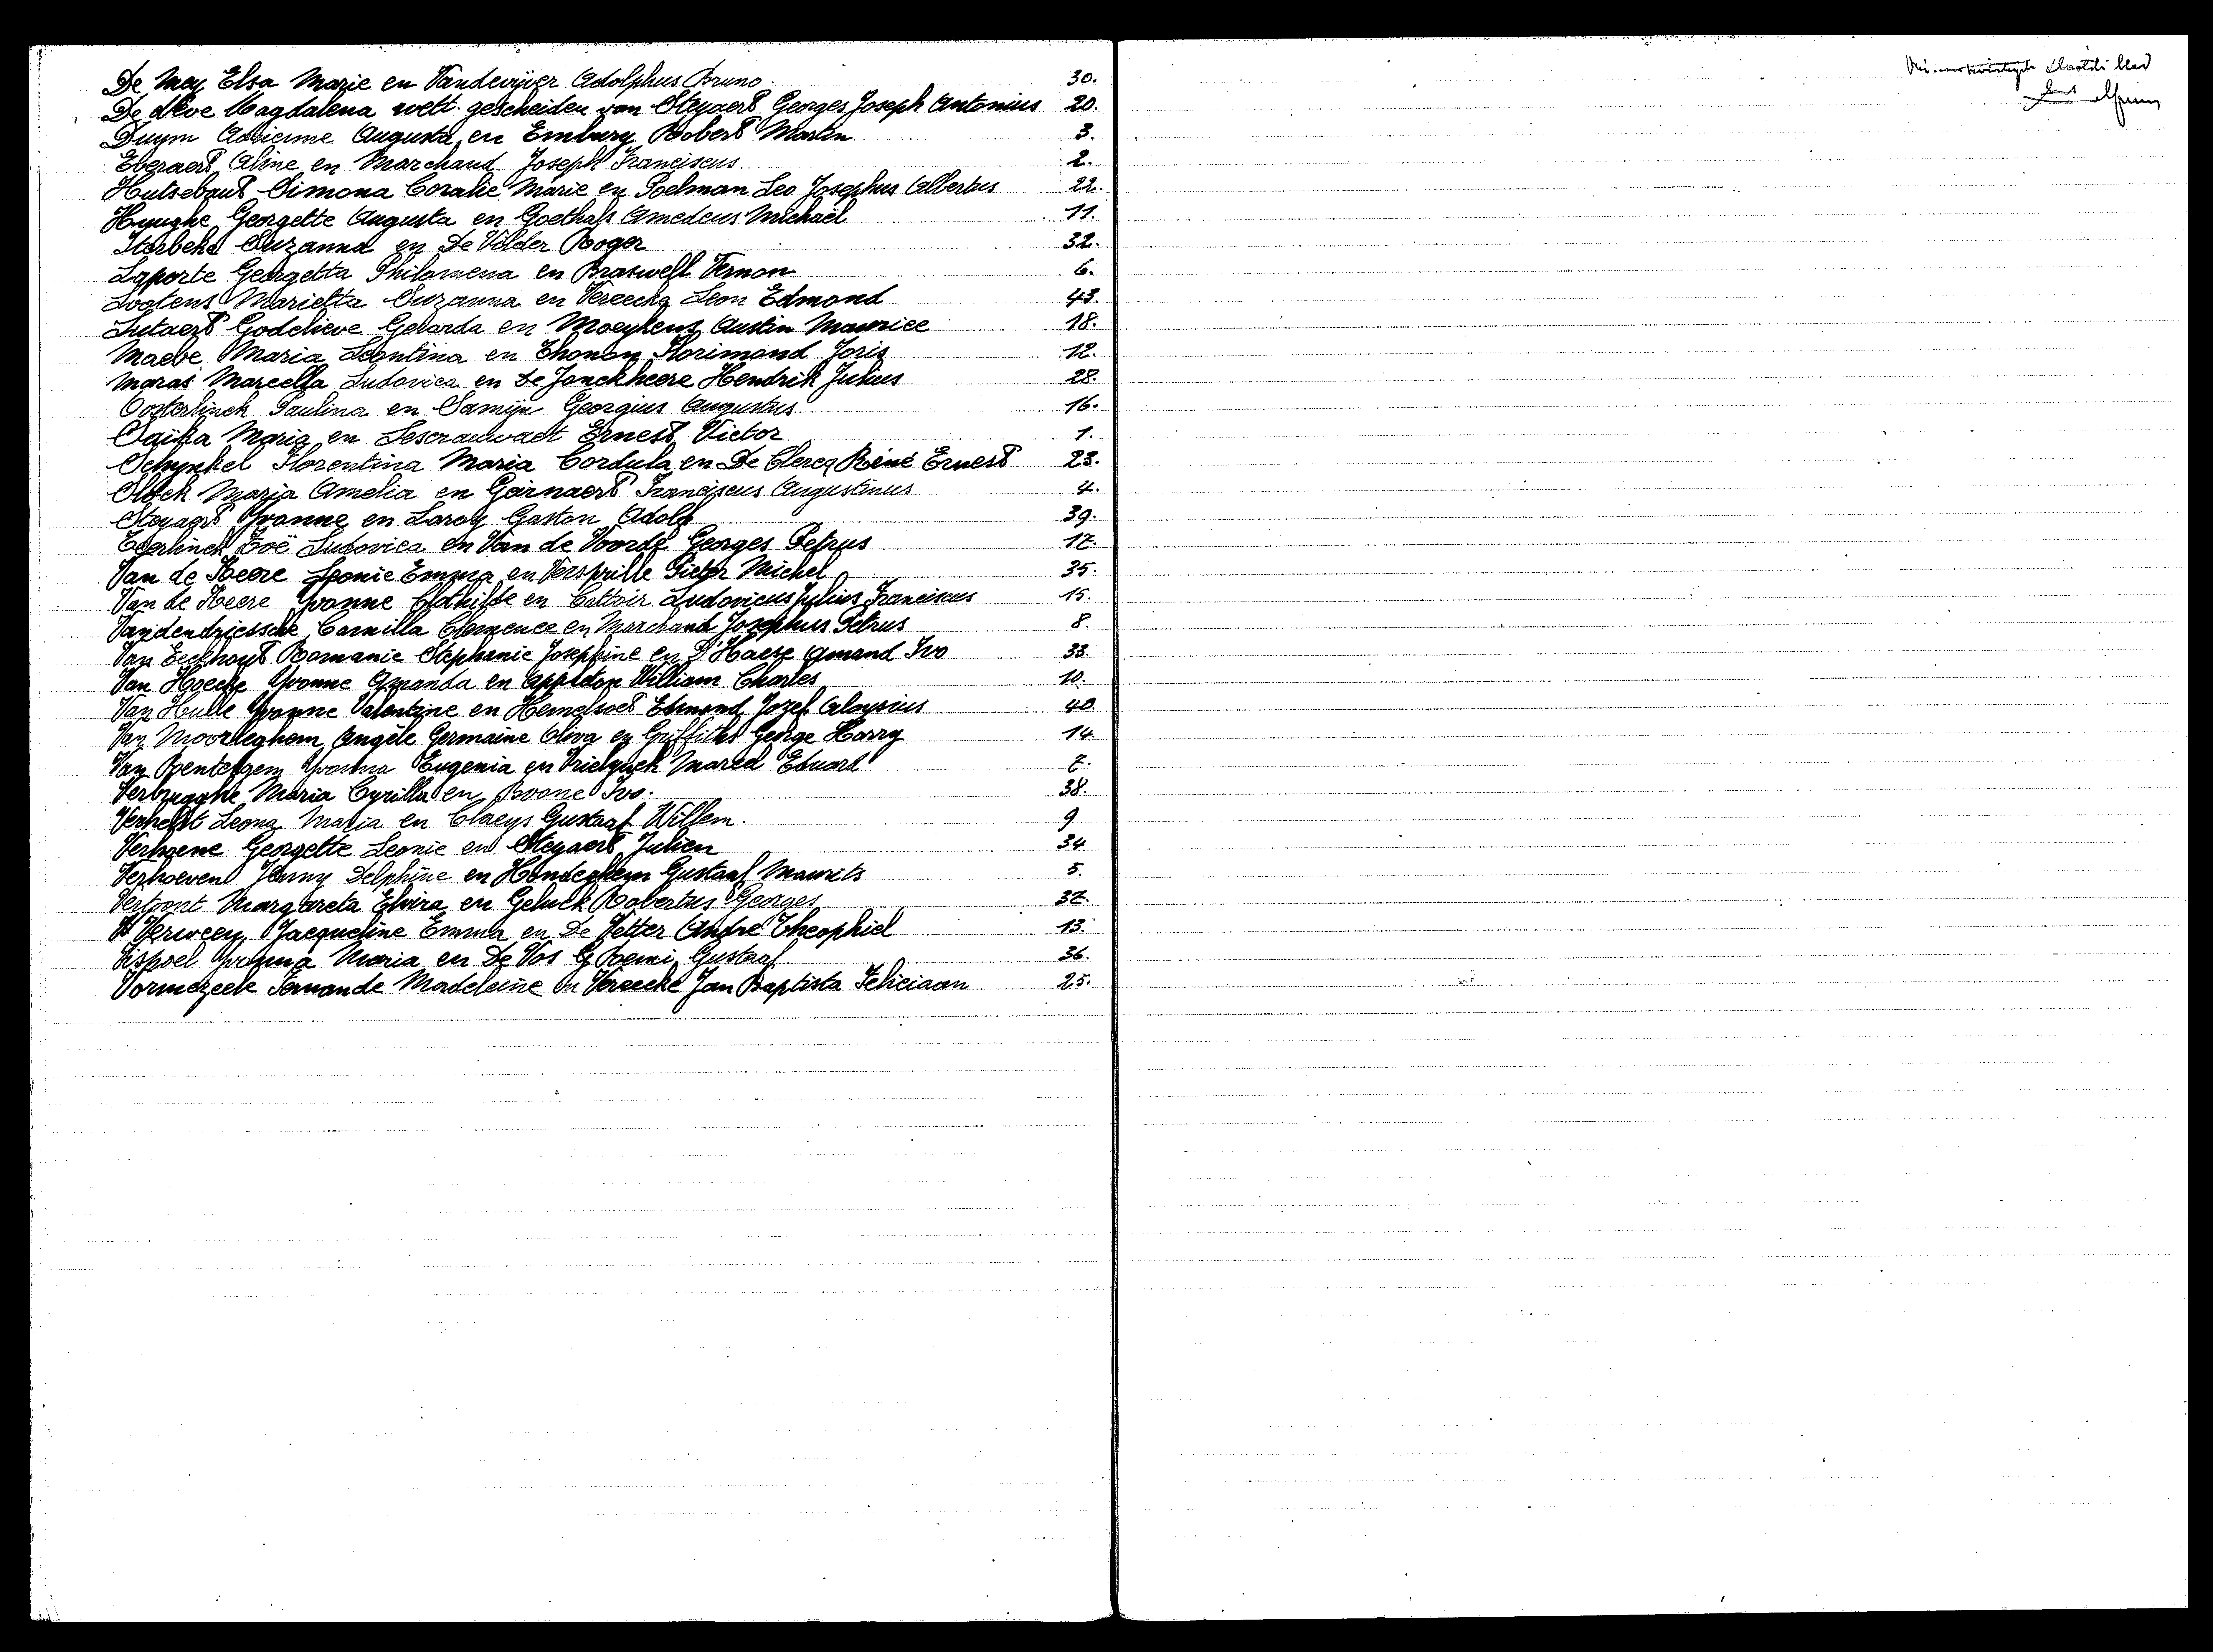 De Mey Elsa Marie en Vandevijver Adolphus Bruno. 30.
De Neve Magdalena wett. gescheiden van Steyaert Georges Joseph Antonius 20.
Duym Adrienne Augusta en Embury Robert Martin 3.
Everaert Aline en Marchand Joseph Franciscus. 2.
Hutsebaut Simona Coralie Marie en Poelman Leo Josephus Albertus 22.
Huughe Georgette Augusta en Goethals Amedeus Michaël 11.
Iterbeke Suzanna en De Vilder Roger 32.
Laporte Georgetta Philomena en Braswell Vernon 6.
Lootens Marietta Suzanna en Vereecke Leon Edmond 43.
Lutaert Godelieve Gerarda en Moeykens Austin Maurice 18.
Maebe Maria Leontina en Thonon Florimond Joris 12.
Maras Marcella Ludovica en De Jonckheere Hendrik Julius 28.
Oosterlinck Paulina en Samijn Georgius Augustus 16.
Saïka Maria en Lescrauwaet Ernest Victor 1.
Schynkel Florentina Maria Cordula en De Clercq Réné Ernest 23.
Slock Maria Amelia en Geirnaert Franciscus Augustinus 4.
Steyaert Yvonne en Laroy Gaston Adolf 39.
Teerlinck Zoë Ludovica en Van de Voorde Georges Petrus 17.
Van de Keere Leonie Emma en Versprille Pieter Michel 35.
Van de Keere Yvonne Clothilde en Cattoir Ludovicus Julius Franciscus 15.
Vandendriessche Camilla Clemence en Marchand Josephus Petrus 8.
Van Eeckhout Romanie Stephanie Josephine en D'Haese Amand Ivo 33.
Van Hoecke Yvonne Amanda en Appleton William Charles 10.
Van Hulle Yvonne Valentine en Hemelsoet Edmond Jozef Aloysius 40.
Van Moorleghem Angèle Germaine Oliva en Griffiths George Harry 14.
Van Renterghem Yvonna Eugenia en Vrielynck Marcel Eduard 7.
Verbrugghe Maria Cyrilla en Boone Ivo. 38.
Verhelst Leona Maria en Claeys Gustaaf Willem. 9
Verhoene Georgette Leonie en Steyaert Julien 34
Verhoeven Jenny Delphine en Hondeghem Gustaaf Maurits 5.
Vertront Margareta Elvira en Geluck Robertus Georges 37.
Verween Jacqueline Emma en De Vetter André Theophiel 13.
Lispoel Yvonna Maria en De Vos Remi Gustaaf 36.
Vormezeele Fernande Madeleine en Vereecke Jan Baptista Feliciaan 25.
blad